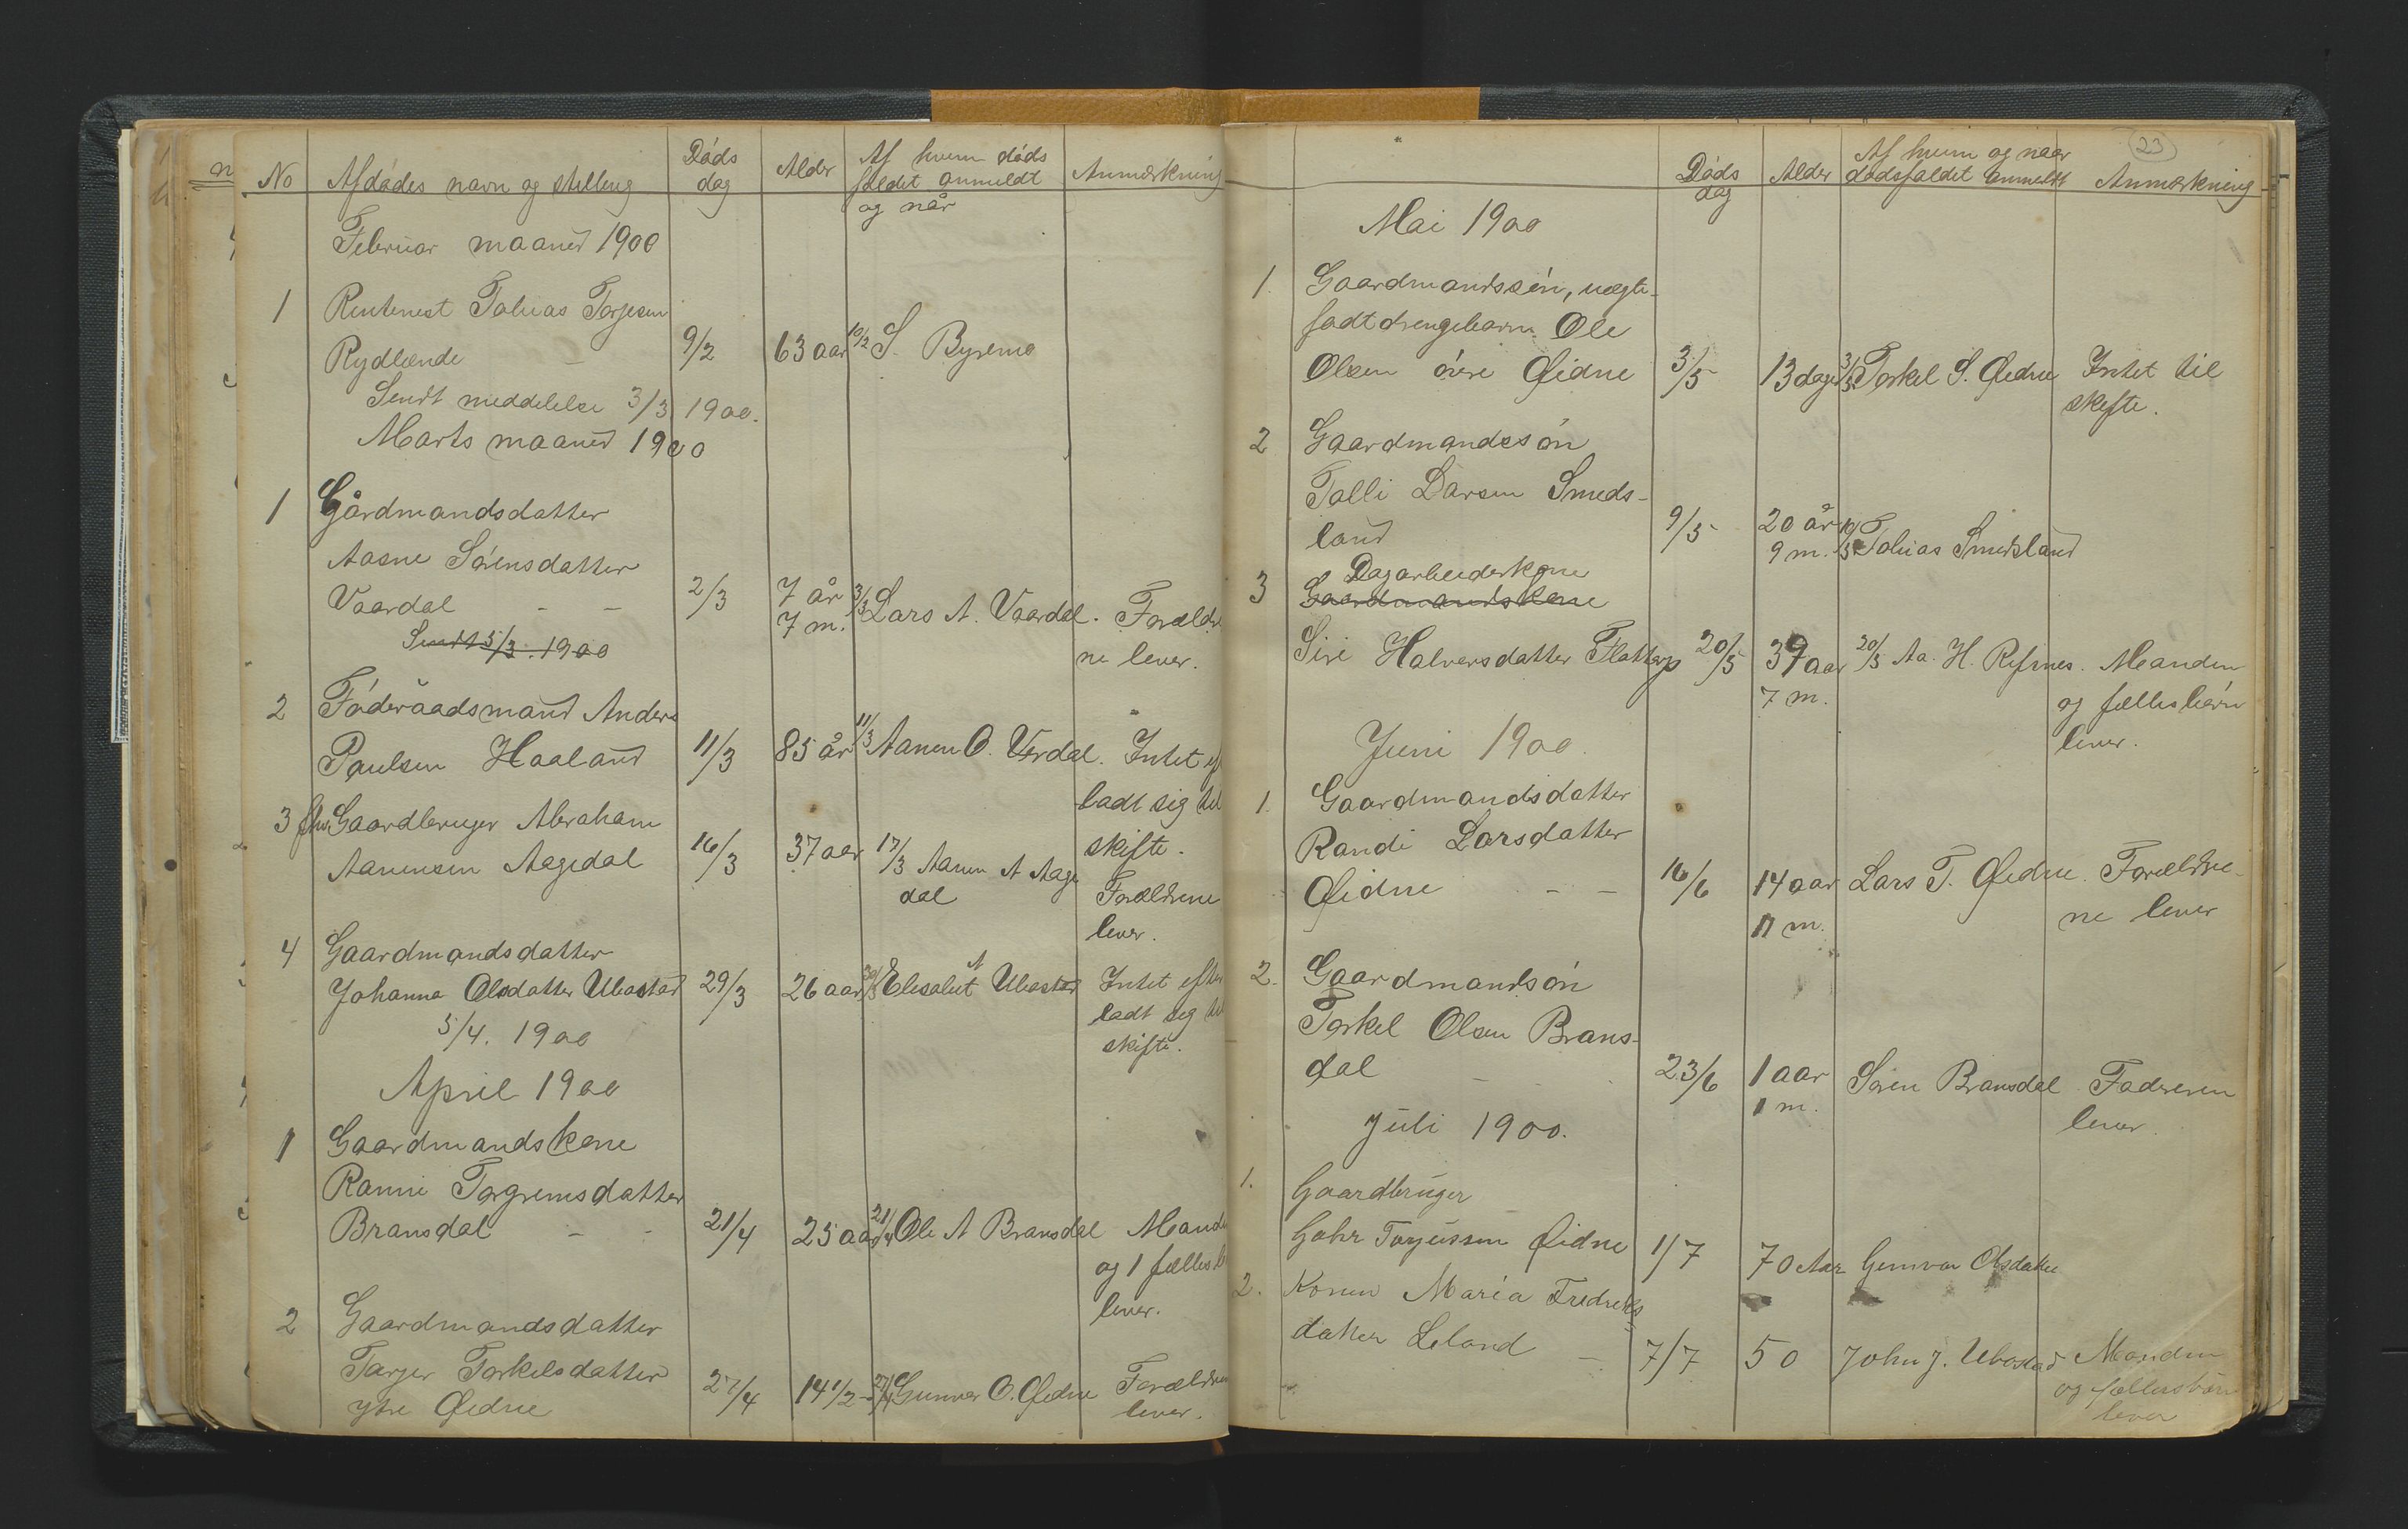 No Afdødes navn og stilling Døds dag Alder Af hvem døds faldet anmeldt og når Anmærkning
Februar maaned 1900
1 Rentenest Tobias Torjesen
Rydlende 9/2 63 aar 10/2 S. Byremo
Sendt meddelelse 3/3 1900.
Marts maaned 1900
1 Gårdmandsdatter
Aasne Sørensdatter
Vaardal - - 2/3 7 år 7 m. 3/3 Lars A. Vaardal. Forældre
Sendt 5/3. 1900 ne lever.
2 Føderaadsmand Anders
Paulsen Haaland 11/3 85 år 11/3 Aanen O. Verdal. Intet ef
ladt sig til
skifte.
3 Gaardbruger Abraham
Aanensen Aagedal 16/3 37 aar 17/3 Aanen A Aage
dal Forældrene
lever.
4 Gaardmandsdatter
Johanna Olsdatter Ubostad 29/3 26 aar 30/3 Elisabet A Ubostad Intet efter
5/4. 1900 ladt sig til
skifte.
April 1900
1 Gaardmandskone
Ranni Torgrimsdatter
Bransdal - - 21/4 25 aar 21/4 Ole A Bransdal Mand
og 1 fælles b
lever.
2 Gaardmandsdatter
Tarjer Torkelsdatter
ytre Øidne 27/4 14 1/2 - 27/4 Gunvor O. Øidne Forældren
lever.
23
Døds dag Alder Af hvem og naar dødsfaldet anmeldt Anmærkning
Mai 1900
1. Gaardmandssøn, uægte
født drengebarn Ole
Olsen øvre Øidne 3/5 13 dage 3/5 Torkel S. Øidne Intet til
skifte.
2 Gaardmandssøn
Tolli Larsen Smeds-
land 9/5 20 år 9 m. 10/5 Tobias Smedsland
3 Dagarbeiderkone
Gaardmandskone
Siri Halvorsdatter Flottorp 20/5 39 aar 20/5 Aa. H. Refsnes. Manden
7 m. og fællesbørn
lever.
Juni 1900.
1. Gaardmandsdatter
Randi Larsdatter
Øidne - - 16/6 14 aar Lars T. Øidne. Forældre-
11 m. ne lever
2. Gaardmandsøn
Torkel Olsen Brans-
dal - 23/6 1 aar Søren Bransdal Faderen
1 m. lever.
Juli 1900.
1. Gaardbruger
Gahr Torjussen Øidne 1/7 70 Aar Gunvor Olsdatter
2. Konen Maria Fredriks
datter Leland - 7/7 50 John J. Ubostad Manden
og fællesbørn
lever